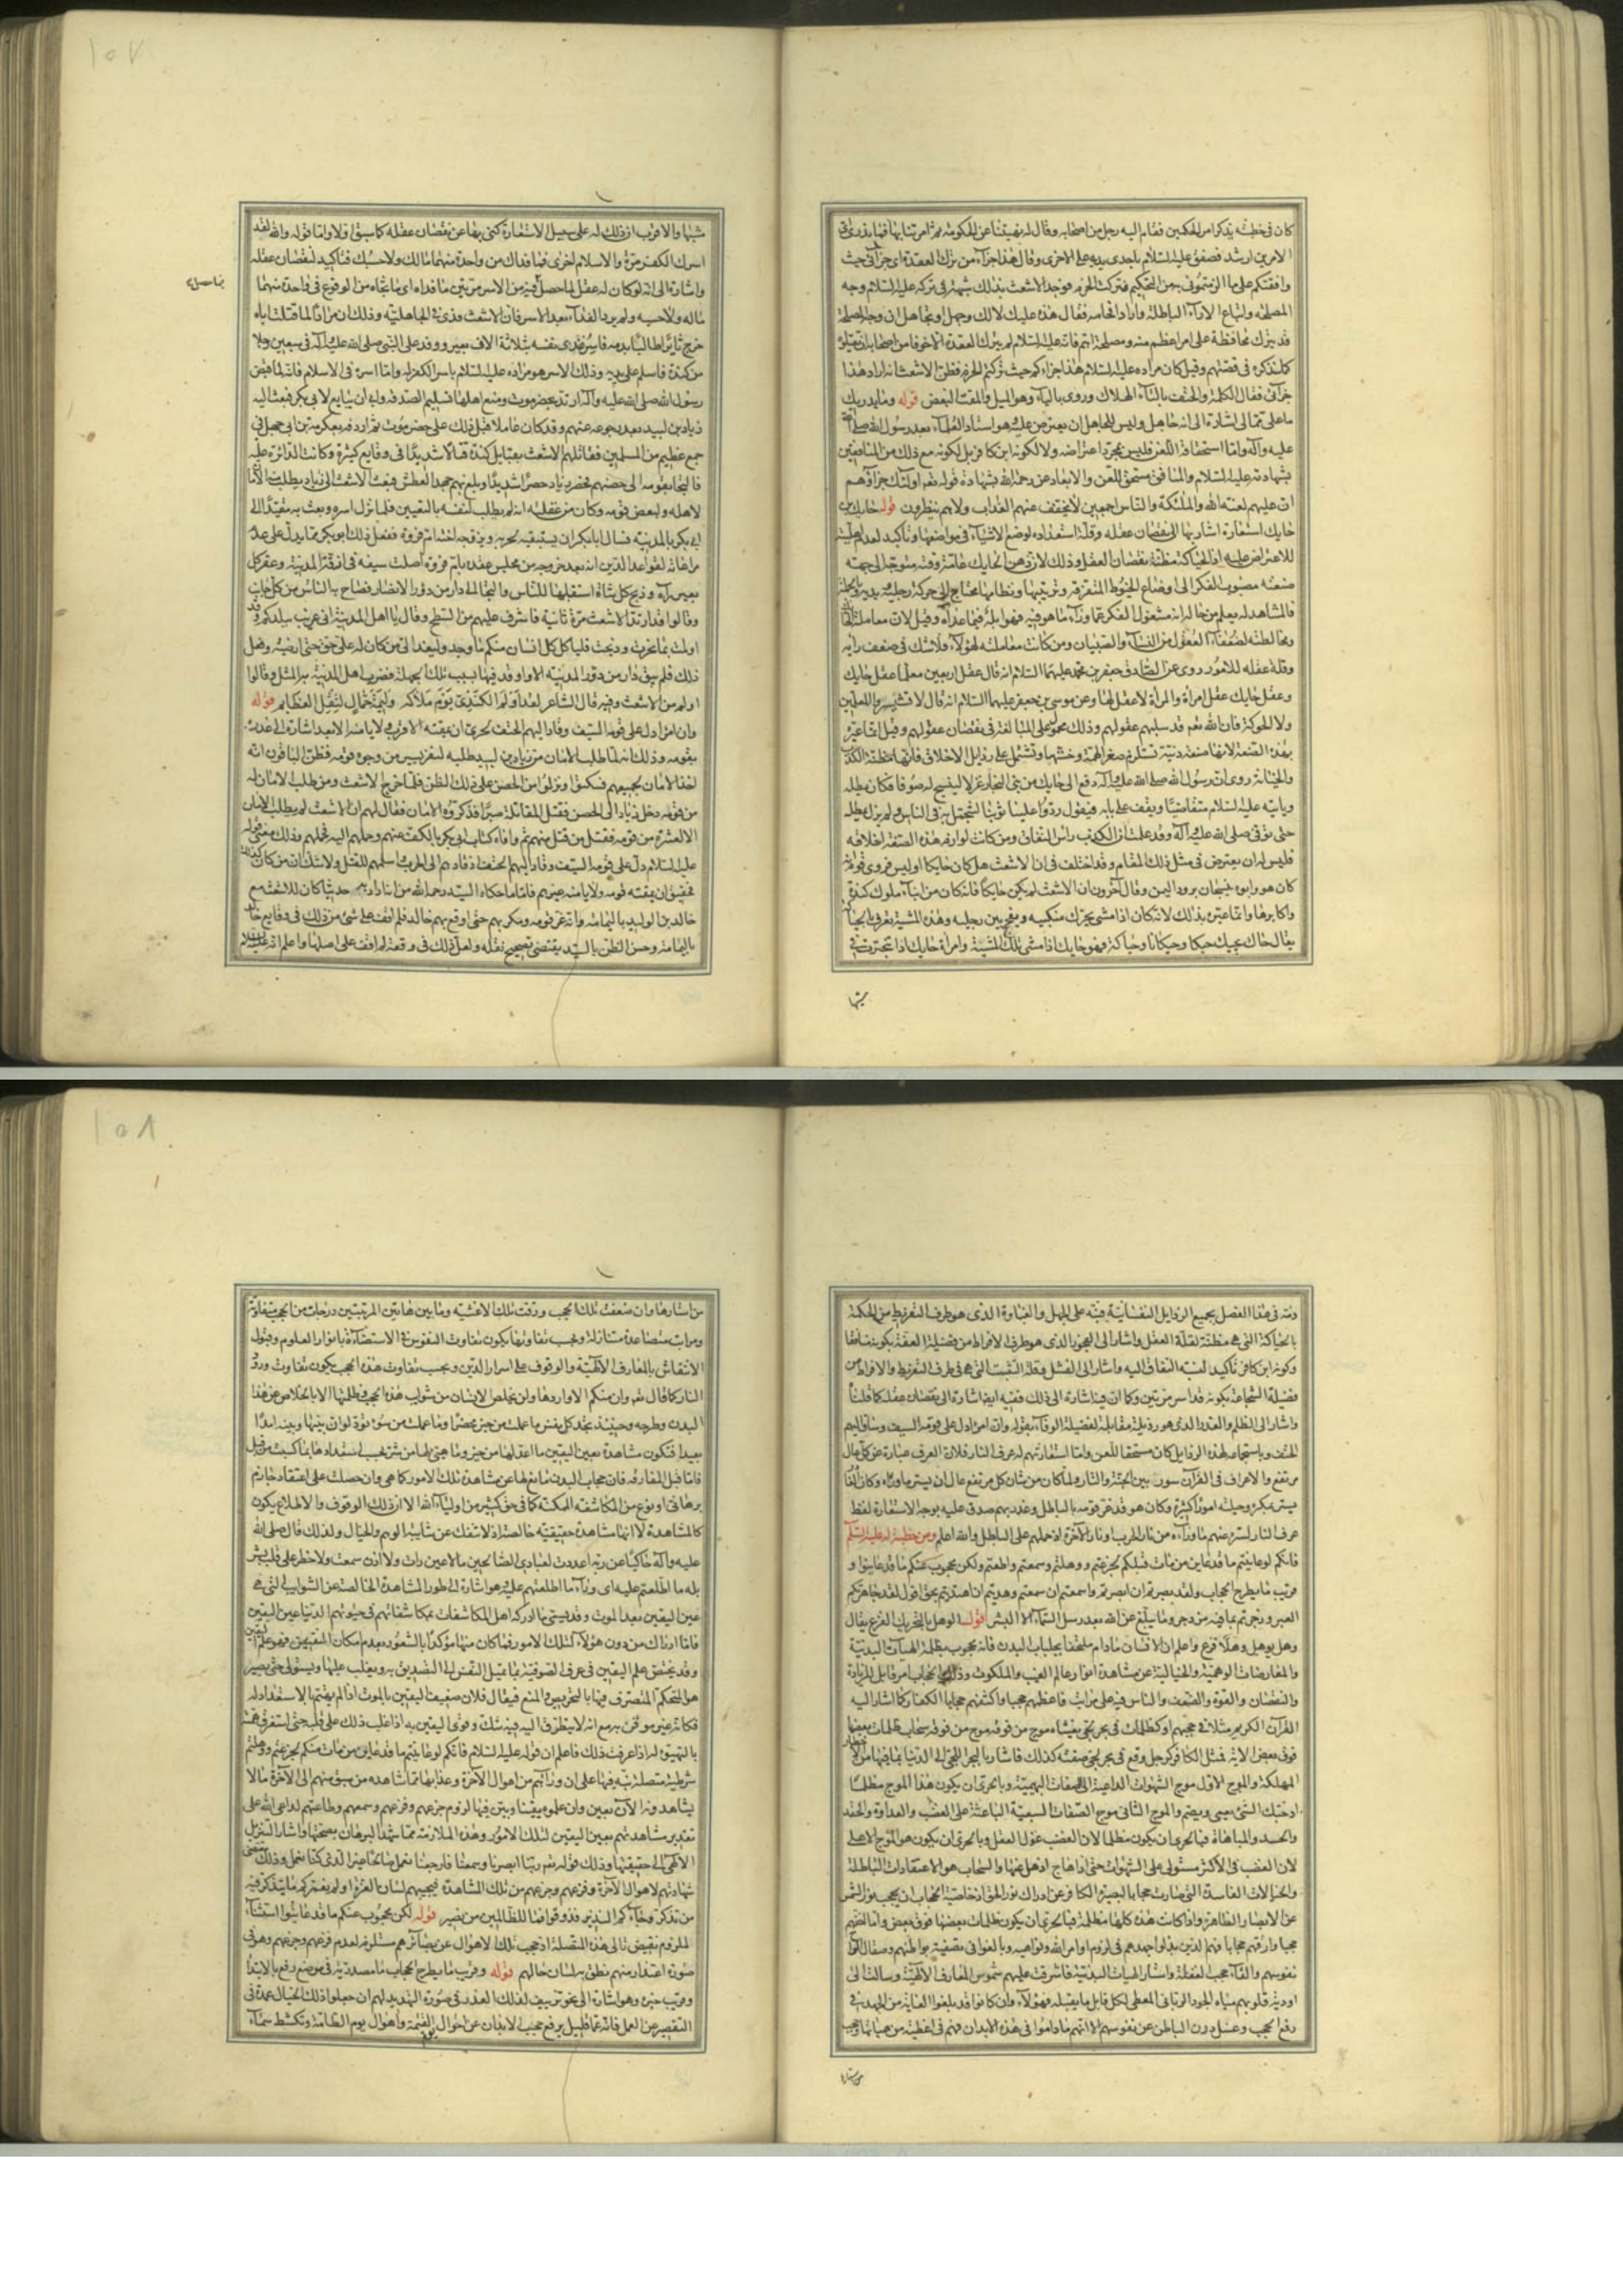 ١٥٧
كان فى خطبته يذكر امر الحكمين فقام اليه رجل من اصحابه وقال له نهيتنا عن الحكومة ثم امرتنا بها فما ندرى اى
الامرين ارشد فصفق عليه السلام باحدى يديه على الاخرى وقال هذا جزآء من ترك العقدة اى جزائى حيث
وافقتكم على ما الزمتمونى به من التحكيم وتركت الحزم فوجد الاشعث بذلك شبهة فى تركه عليه السلام وجه
المصلحة واتباع الاراء الباطلة واراد افحامه فقال هذه عليك لا لك وجهل او تجاهل ان وجه المصلحة
قد يترك محافظة على امر اعظم منه ومصلحة اهم فانه عليه السلام لم يترك العقدة الا خوفا من اصحابه ان يقتلوه
كما سنذكره فى قصتهم وقيل كان مراده عليه السلام هذا جزاءكم حيث تركتم الحزم فظن الاشعث انه اراد هذا
جزائى فقال الكلمة والحتف بالتآء الهلاك وروى باليآء وهو الميل والمقت البغض قوله وما يدريك
ما على مما لى اشارة الى انه جاهل وليس للجاهل ان يعترض عليه وهو استاد العلمآء بعد رسول الله صلى الله
عليه وآله واما استحقاقه اللعن فليس بمجرد اعتراضه ولا لكونه ابن كافر بل لكونه مع ذلك من المنافقين
بشهادته عليه السلام والمنافق مستحق للعن والابعاد عن رحمة الله بشهادة قوله تعم اولئك جزآؤهم
ان عليهم لعنة الله والملئكة والناس اجمعين لا يخفف عنهم العذاب ولا هم ينظرون قوله حايك بن
حايك استعارة اشار بها الى نقصان عقله وقلة استعداده لوضع الاشيآء فى مواضعها وتاكيد لعدم اهليته
للاعتراض عليه اذ الحياكة مظنة نقصان العقل وذلك لان ذهن الحايك عامة وقته متوجه الى جهته
صنعته مصبوب الفكر الى اوضاع الخيوط المتفرقة وترتيبها ونظامها محتاج الى حركة رجليه ويديه وبالجملة
فالمشاهد له يعلم من حاله انه مشغول الفكر عما ورآء ما هو فيه فهو ابله فيما عداه وقيل لان معاملة الحايك
ومخالطته لضعفآء العقول من النسآء والصبيان ومن كانت معاملته لهؤلآء فلا شك فى ضعف رايه
وقلة عقله للامور روى عن الصادق جعفر بن محمد عليهما السلام انه قال عقل اربعين معلما عقل حايك
وعقل حايك عقل امراة والمراة لا عقل لها وعن موسى بن جعفر عليهما السلام انه قال لا تستشيروا المعلمين
ولا الحوكة فان الله تعم قد سلبهم عقولهم وذلك محمول على المبالغة فى نقصان عقولهم وقيل انما عيره
بهذه الصنعة لانها صنعة دنية تستلزم صغر الهمة وخستها وتشتمل على رذايل الاخلاق فانها مظنة الكذب
والخيانة روى ان رسول الله صلى الله عليه وآله دفع الى حايك من بنى النجار غزلا لينسج له صوفا فكان يمطله
وياتيه عليه السلام متقاضيا ويقف على بابه فيقول ردوا علينا ثوبنا لنتجمل به فى الناس ولم يزل يمطله
حتى توفى صلى الله عليه وآله وقد علمت ان الكذب راس النفاق ومن كانت لوازم هذه الصنعة اخلاقه
فليس له ان يعترض فى مثل ذلك المقام وقد اختلف فى ان الاشعث هل كان حايكا او ليس فروى قوم انه
كان هو وابوه ينسجان برود اليمن وقال آخرون ان الاشعث لم يكن حايكا فانه كان من ابنآء ملوك كندة
واكابرها وانما عيره بذلك لانه كان اذا مشى يحرك منكبيه ويفحج بين رجليه وهذه المشية تعرف بالحياكة
يقال حاك يحيك حيكا وحيكانا وحياكة فهو حايك اذا مشى تلك المشية وامراة حايك اذا تبخترت فى
مشيها
مشيها والاقرب ان ذلك له على سبيل الاستعارة كنى بها عن نقصان عقله كما سبق اولا واما قوله والله لقد
اسرك الكفر مرة والاسلام اخرى فما فداك من واحدة منهما مالك ولا حسبك فتاكيد لنقصان عقله
واشارة الى انه لو كان له عقل لما حصل فيه من الاسر مرتين ما فداه اى ما نجاه من الوقوع فى واحدة منهما
ماله ولا حسبه ولم يرد الفدآء بعد الاسر فان الاشعث فدى فى الجاهلية وذلك ان مرادا لما قتلت اباه
خرج ثايرا طالبا بدمه فاسر ففدى نفسه بثلاثة الاف بعير ووفد على النبى صلى الله عليه وآله فى سبعين رجلا
من كندة فاسلم على يديه وذلك الاسر هو مراده عليه السلام باسر الكفر له واما اسره فى الاسلام فانه لما قبض
رسول الله صلى الله عليه وآله ارتد بحضرموت ومنع اهلها تسليم الصدقة وابى ان يبايع لابى بكر فبعث اليه
زياد بن لبيد بعد رجوعه عنهم وقد كان عاملا قبل ذلك على حضرموت ثم اردفه بعكرمة بن ابى جهل فى
جمع عظيم من المسلمين فقاتلهم الاشعث بقبايل كندة قتالا شديدا فى وقايع كثيرة وكانت الدائرة عليه
فالتجا بقومه الى حصنهم فحصره زياد حصرا شديدا وبلغ بهم جهد العطش فبعث الاشعث الى زياد يطلب منه الامان
لاهله ولبعض قومه وكان من غفلته انه لم يطلب لنفسه بالتعيين فلما نزل اسره وبعث به مقيدا الى
ابى بكر بالمدينة فسال ابا بكر ان يستبقيه لحربه ويزوجه اخته ام فروة ففعل ذلك ابو بكر مما يدل على عدم
مراعاته لقواعد الدين انه بعد خروجه من مجلس عقده بام فروة اصلت سيفه فى ازقة المدينة وعقر كل
بعير رآه وذبح كل شاة استقبلها للناس والتجا الى دار من دور الانصار فصاح به الناس من كل جانب
وقالوا قد ارتد الاشعث مرة ثانية فاشرف عليهم من السطح وقال يا اهل المدينة انى غريب ببلدكم وقد
اولمت بما نحرت وذبحت فلياكل كل انسان منكم ما وجد وليغد الى من كان له على حق حتى ارضيه وفعل
ذلك فلم يبق دار من دور المدينة الا وقد اوقد فيها بسبب تلك الجملة فضرب اهل المدينة به المثل وقالوا
اولم من الاشعث وفيه قال الشاعر لقد اولم الكندى يوم ملاكه وليمة حمال لثقل العظايم قوله
وان امرا دل على قومه السيف وقاد اليهم الحتف لحرى ان يمقته الاقرب ولا يامنه الابعد اشارة الى غدره
بقومه وذلك انه لما طلب الامان من زياد بن لبيد طلبه لنفر يسير من وجوه قومه فظن الباقون انه
اخذ الامان لجميعهم فسكتوا ونزلوا من الحصن على ذلك الظن فلما خرج الاشعث ومن طلب الامان له
من قومه دخل زياد الى الحصن فقتل المقاتلة صبرا فذكروه الامان فقال لهم ان الاشعث لم يطلب الامان
الا لعشرة من قومه فقتل من قتل منهم ثم وافاه كتاب ابى بكر بالكف عنهم وحملهم اليه فحملهم وذلك معنى قوله
عليه السلام دل على قومه السيف وقاد اليهم الحتف اذ قادهم الى الحرب واسلمهم للقتل ولا شك ان من كان كذلك
فحقيق ان يمقته قومه ولا يامنه غيرهم فاما ما حكاه السيد رحمه الله من انه اراد به حديثا كان للاشعث مع
خالد بن الوليد باليمامة وانه غر قومه ومكر بهم حتى اوقع بهم خالد فلم اقف على شئ من ذلك فى وقايع خالد
باليمامة وحسن الظن بالسيد يقتضى تصحيح نقله ولعل ذلك فى وقعة لم اقف على اصلها واعلم انه عليه السلام
١٥٨
ذمه فى هذا الفصل بجميع الرذايل النفسانية فنبه على الجهل والغباوة الذى هو طرف التفريط من الحكمة
بالحياكة التى هى مظنة لقلة العقل واشار الى الفجور الذى هو طرف الافراط من فضيلة العفة بكونه منافقا
وكونه ابن كافر تاكيد لنسبة النفاق اليه واشار الى الفشل وقلة التثبت التى هى فى طرف التفريط والافراط من
فضيلة الشجاعة بكونه قد اسر مرتين وكما ان فيه اشارة الى ذلك ففيه ايضا اشارة الى نقصان عقله كما قلنا
واشار الى الظلم والغدر الذى هو رذيلة مقابلة لفضيلة الوفآء بقوله وان امرا دل على قومه السيف وساق اليهم
الحتف وباستجماعه لهذه الرذايل كان مستحقا للعن واما استعارتهم له عرف النار فلان العرف عبارة عن كل عال
مرتفع والاعراف فى القرآن سور بين الجنة والنار ولما كان من شان كل مرتفع عال ان يستر ما ورآءه وكان الاشعث
يستر بمكره وحيله امورا كثيرة وكان هو قد غر قومه بالباطل وغدر بهم صدق عليه بوجه الاستعارة لفظ
عرف النار لستره عنهم ما ورآءه من نار الحرب ونار الآخرة اذ حملهم على الباطل والله اعلم ومن خطبة له عليه السلم
فانكم لو عاينتم ما قد عاين من مات قبلكم لجزعتم ووهلتم وسمعتم واطعتم ولكن محجوب عنكم ما قد عاينوا و
قريب ما يطرح الحجاب ولقد بصرتم ان ابصرتم واسمعتم ان سمعتم وهديتم ان اهتديتم بحق اقول لقد جاهرتكم
العبر وزجرتم بما فيه مزدجر وما يبلغ عن الله بعد رسل السمآء الا البشر قوله الوهل بالتحريك الفزع يقال
وهل يوهل وهلا فزع واعلم ان الانسان ما دام ملتحفا بجلباب البدن فانه محجوب بظلمة الهيئات البدنية
والمعارضات الوهمية والخيالية عن مشاهدة انوار عالم الغيب والملكوت وذلك الحجاب امر قابل للزيادة
والنقصان والقوة والضعف والناس فيه على مراتب فاعظمهم حجبا واكثفهم حجابا الكفار كما اشار اليه
القرآن الكريم مثلا فى حجبهم او كظلمات فى بحر لجى يغشاه موج من فوقه موج من فوقه سحاب ظلمات بعضها
فوق بعض الاية فمثل الكافر كرجل وقع فى بحر لجى صفته كذلك فاشار بالبحر اللجى الى الدنيا بما فيها من الاخطار
المهلكة والموج الاول موج الشهوات الداعية الى الصفات البهيمية وبالحرى ان يكون هذا الموج مظلما
اذ حبك الشئ يعمى ويصم والموج الثانى موج الصفات السبعية الباعثة على الغضب والعداوة والحقد
والحسد والمباهاة فبالحرى ان يكون مظلما لان الغضب غول العقل وبالحرى ان يكون هو الموج الاعلى
لان الغضب فى الاكثر مستولى على الشهوات حتى اذا هاج اذهل عنها والسحاب هو الاعتقادات الباطلة
والخيالات الفاسدة التى صارت حجابا لبصيرة الكافر عن ادراك نور الحق اذ خاصية الحجاب ان يحجب نور الشمس
عن الابصار الظاهرة واذا كانت هذه كلها مظلمة فبالحرى ان يكون ظلمات بعضها فوق بعض واما اخفهم
حجبا وارقهم حجابا فهم الذين بذلوا جهدهم فى لزوم اوامر الله ونواهيه وبالغوا فى تصفية بواطنهم وصقال الواح
نفوسهم والقآء حجب الغفلة واستار الهيئات البدنية فاشرقت عليهم شموس المعارف الالهية وسالت الى
اودية قلوبهم مياه الجود الربانى المعطى لكل قابل ما يقبله فهؤلآء وان كانوا قد بلغوا الغاية من الجهد فى
رفع الحجب وغسل درن الباطن عن نفوسهم الا انهم ما داموا فى هذه الابدان فهم فى اغطية من هيئاتها وحجب
من استارها
من استارها وان ضعفت تلك الحجب ورقت تلك الاغشية وما بين هاتين المرتبتين درجات من الحجب متفاوتة
ومراتب متصاعدة متنازلة وبحسب تفاوتها يكون تفاوت النفوس فى الاستضآءة بانوار العلوم وقبول
الانتقاش بالمعارف الالهية والوقوف على اسرار الدين وبحسب تفاوت هذه الحجب يكون تفاوت ورود
النار كما قال تعم وان منكم الا واردها ولن يتخلص الانسان من شوايب هذه الحجب وظلمتها الا بالخلاص عن هذا
البدن وطرحه وحينئذ تجد كل نفس ما عملت من خير محضرا وما عملت من سوء تود لو ان بينها وبينه امدا
بعيدا فتكون مشاهدة بعين اليقين ما اعد لها من خير وما هئ لها من شر بحسب استعدادها بما كسبت من قبل
فاما قبل المفارقة فان حجاب البدن مانع لها عن مشاهدة تلك الامور كما هى وان حصلت على اعتقاد جازم
برهانى او نوع من المكاشفة الممكنة كما فى حق كثير من اوليآء الله الا ان ذلك الوقوف والاطلاع يكون
كالمشاهدة لا انها مشاهدة حقيقية خالصة اذ لا تنفك عن شايبة الوهم والخيال ولذلك قال صلى الله
عليه وآله حاكيا عن ربه اعددت لعبادى الصالحين ما لا عين رات ولا اذن سمعت ولا خطر على قلب بشر
بله ما اطلعتم عليه اى ورآء ما اطلعتهم عليه وهو اشارة الى طور المشاهدة الخالصة عن الشوايب التى هى
عين اليقين بعد الموت وقد يسمى ما ادركه اهل المكاشفات بمكاشفاتهم فى حيوتهم الدنيا عين اليقين
فاما ادراك من دون هؤلآء لتلك الامور فما كان منها مؤكدا بالشعور بعدم امكان النقيض فهو علم اليقين
وقد يختص علم اليقين فى عرف الصوفية بما تميل النفس الى التصديق به ويغلب عليها ويستولى حتى يصير
هو المتحكم المتصرف فيها بالتحريض والمنع فيقال فلان ضعيف اليقين بالموت اذا لم يهتم بالاستعداد له
فكانه غير موقن به مع انه لا يتطرق اليه فيه شك وقوى اليقين به اذا غلب ذلك على قلبه حتى استغرق همه
بالتهيؤ له اذا عرفت ذلك فاعلم ان قوله عليه السلام فانكم لو عاينتم ما قد عاين من مات منكم لجزعتم ووهلتم
شرطية متصلة نبه فيها على ان ورآئهم من اهوال الآخرة وعذابها مما شاهده من سبق منهم الى الآخرة ما لا
يشاهدونه الآن بعين وان علموه يقينا وبين فيها لزوم جزعهم وفزعهم وسمعهم وطاعتهم لداعى الله على
تقدير مشاهدتهم بعين اليقين لتلك الامور وهذه الملازمة مما شهد البرهان بصحتها واشار التنزيل
الالهى الى حقيقتها وذلك قوله تعم ربنا ابصرنا وسمعنا فارجعنا نعمل صالحا غير الذى كنا نعمل وذلك
شهادتهم لاهوال الآخرة وفزعهم وجزعهم من تلك المشاهدة فيجيبهم لسان العزة اولم نعمركم ما يتذكر فيه
من تذكر وجآءكم النذير فذوقوا فما للظالمين من نصير قوله لكن محجوب عنكم ما قد عاينوا استثنآء
لملزوم نقيض تالى هذه المتصلة اذ حجب تلك الاهوال عن بصآئرهم مستلزم لعدم فزعهم وجزعهم وهو فى
صورة اعتذار منهم نطق به لسان حالهم قوله وقريب ما يطرح الحجاب ما مصدرية فى موضع رفع بالابتدا
وقريب خبره وهو اشارة الى نحو تزييف لذلك العذر فى صورة التهديد لهم ان جعلوا ذلك الخيال عمدة فى
التقصير عن العمل فانه عما قليل يرفع حجب الابدان عن احوال القيمة واهوال يوم الطامة وتكشط سمآء